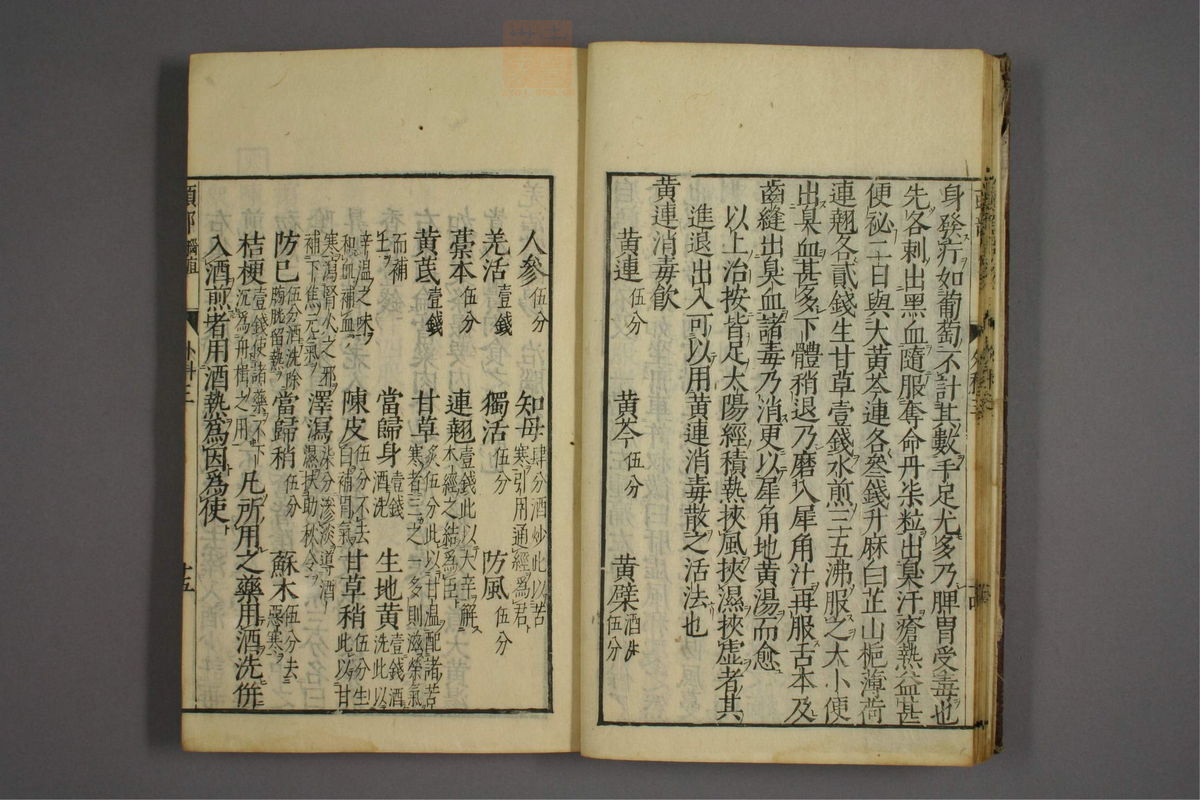 身發疔如葡萄不計其數手足尤多乃脾胃受毒也
先各刺出黑血隨服奪命丹柒粒出臭汗瘡熱益甚
便祕二日與大黃芩連各叁錢升麻白芷山梔薄荷
連翹各貳錢生甘草壹錢水煎三五沸服之大小便
出臭血甚多下體稍退乃磨入犀角汁再服舌本及
齒縫出臭血諸毒乃消更以犀角地黃湯而愈
以上治按皆足太陽經積熱挾風挾濕挾虛者其
進退出入可以用黃連消毒散之活法也
黃連消毒飲
黃連伍分 黃芩伍分 黃檗酒炒伍分
人參伍分 知母肆分酒炒此以苦寒引用通經爲君
羌活壹錢 獨活伍分 防風伍分
藁本伍分 連翹壹錢此以大辛解木經之結爲臣
黃芪壹錢 甘草炙伍分此以甘溫配諸苦寒者三之一多則滋榮氣
而補生 當歸身壹錢酒洗 生地黃壹錢酒洗此以
辛溫之味和血補血 陳皮伍分不去白補胃氣 甘草稍伍分生此以甘
寒瀉腎火之邪補下焦元氣 澤瀉柒分滲淡導酒濕扶助秋令
防已伍分酒洗除膀胱留熱 當歸稍伍分 蘇木伍分去惡寒
桔梗壹錢使諸藥不下沉爲舟楫之用 凡所用之藥用酒洗
入酒煎者用酒熱爲因爲使
頭部 腦疽 外科三 十五